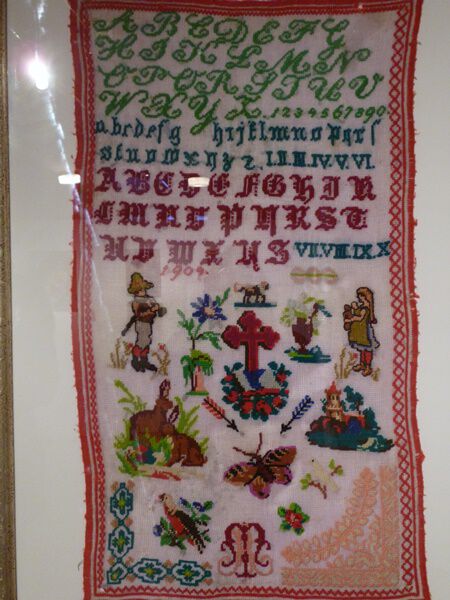 A B C D E F G
H I J K L M N
O P Q R S T U V
W X Y Z. 1234567890.
abcdefg hijklmnopqrſ
stuvwxyz I.II.III.IV.V.VI.
A B C D E F G H I K
L M N O P Q R S T
U V W X Y S VII.VIII.IX.X
1904.
M